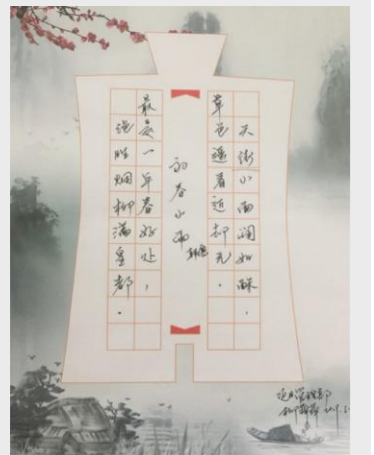 天街小雨润如酥，
草色遥看近却无。
初春小雨
韩愈
最是一年春好处，
绝胜烟柳满皇都。